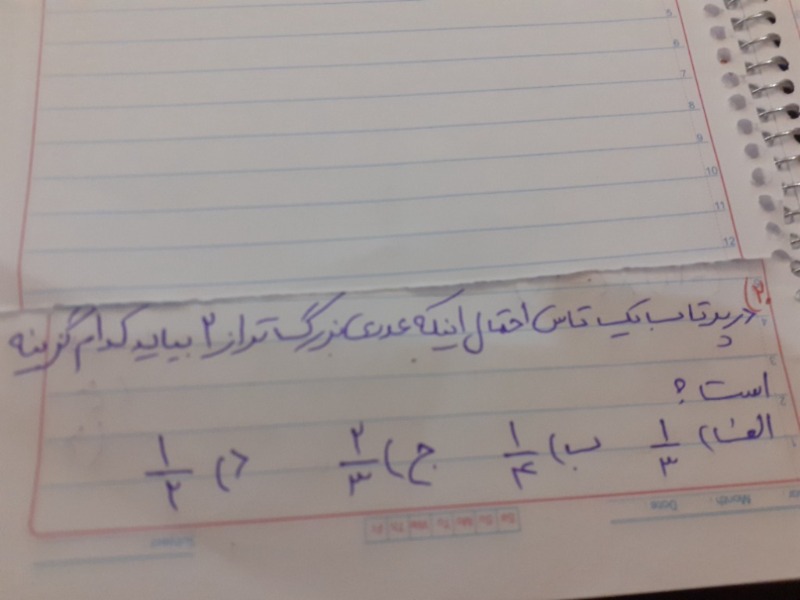 5
6
7
8
9
10
11
12
۲) در پرتاب یک تاس احتمال اینکه عددی بزرگ تر از ۲ بیاید کدام گزینه
است ؟
الف) ۱/۳ ب) ۱/۴ ج) ۲/۳ د) ۱/۲
Sa Su Mo Tu We Th Fr
Date: Month:
Subject: